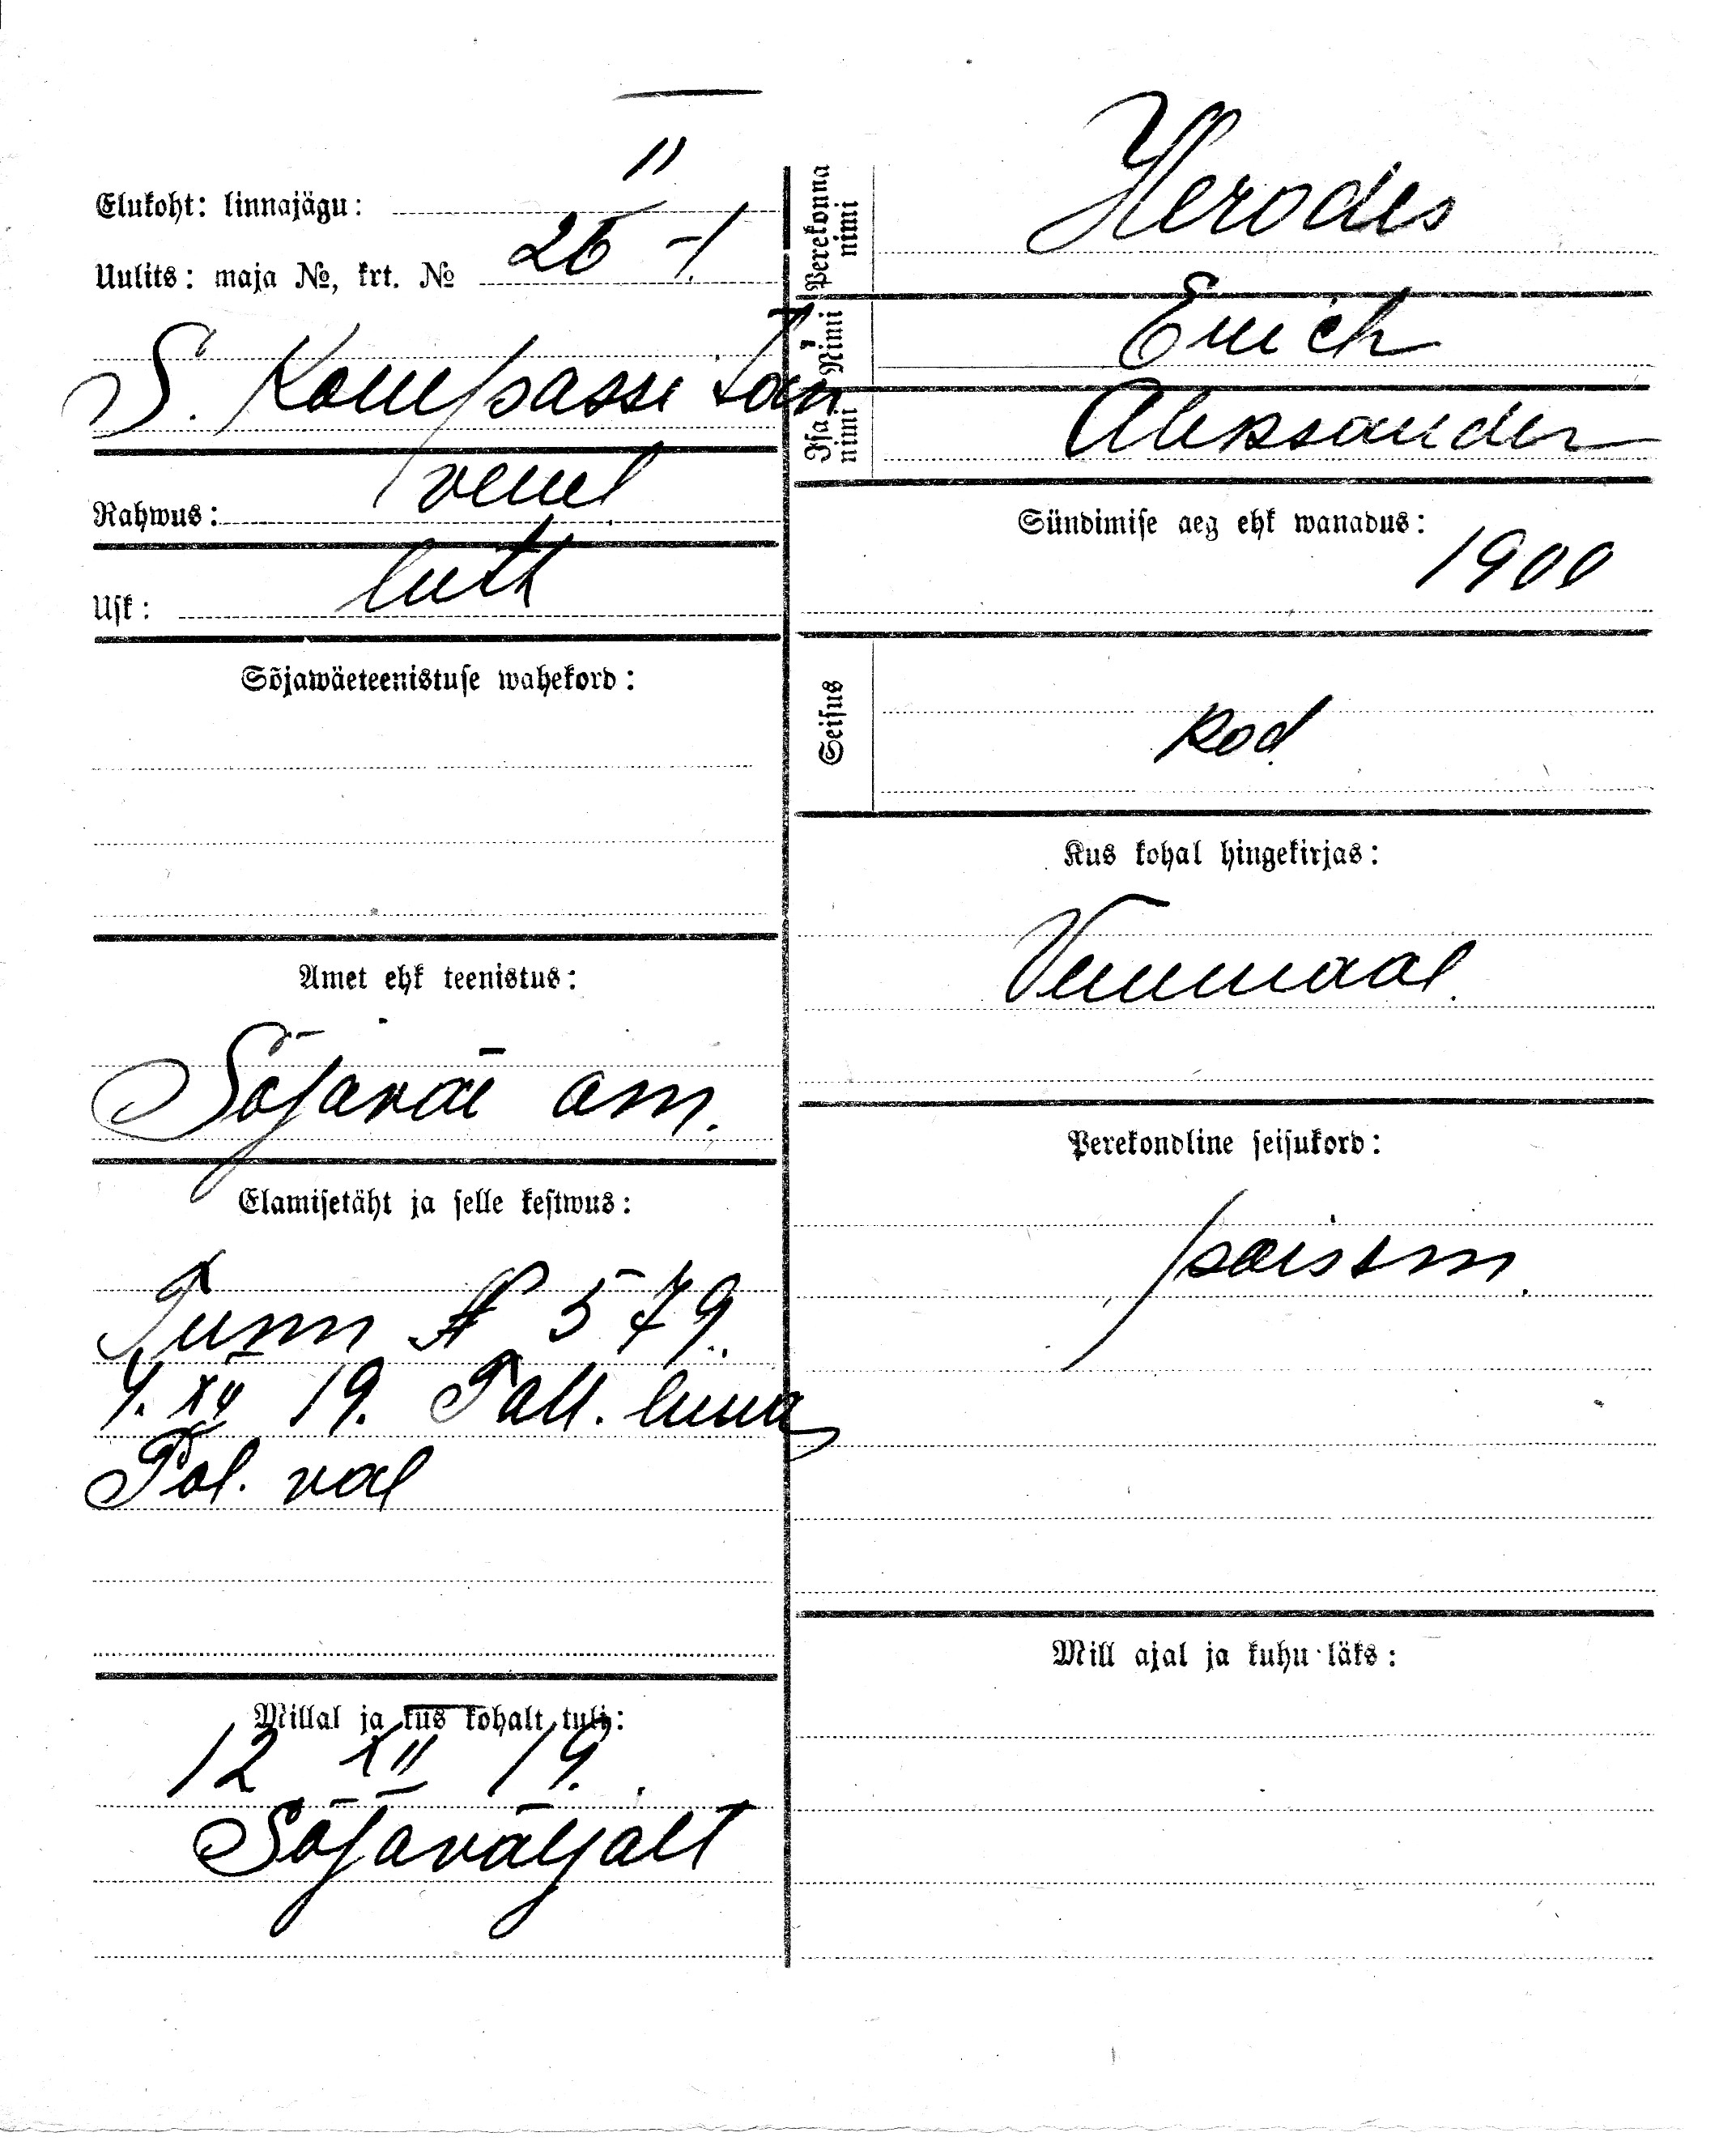 II
Elukoht: linnajägu:
Uulits: maja №, krt. № 26 -1
S. Kompassi tän
Rahwus: venel
Usk: luth
Sõjawäeteenistuse wahekord:
Amet ehk teenistus:
Sõjaväe am.
Elamisetäht ja selle kestwus:
Tunn № 579.
4. XII 19. Tall. linna
Pol. val
Millal ja kus kohalt tuli:
12 XII 19.
Sõjaväljalt
Perekonna nimi Herodes
Nimi Erich
Isa nimi Aleksander
Sündimise aeg ehk wanadus:
1900
Seisus
kod.
Kus kohal hingekirjas:
Venemaal.
Perekondline seisukord:
poissm.
Mill ajal ja kuhu läks: